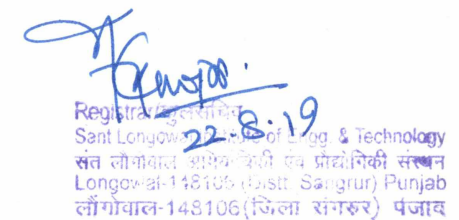 22-8-19
Registrar/कुलसचिव
Sant Longowal Institute of Engg. & Technology
संत लौंगोवाल अभियांत्रिकी एवं प्रौद्योगिकी संस्थान
Longowal-148106 (Distt. Sangrur) Punjab
लौंगोवाल-148106(जिला संगरुर) पंजाब